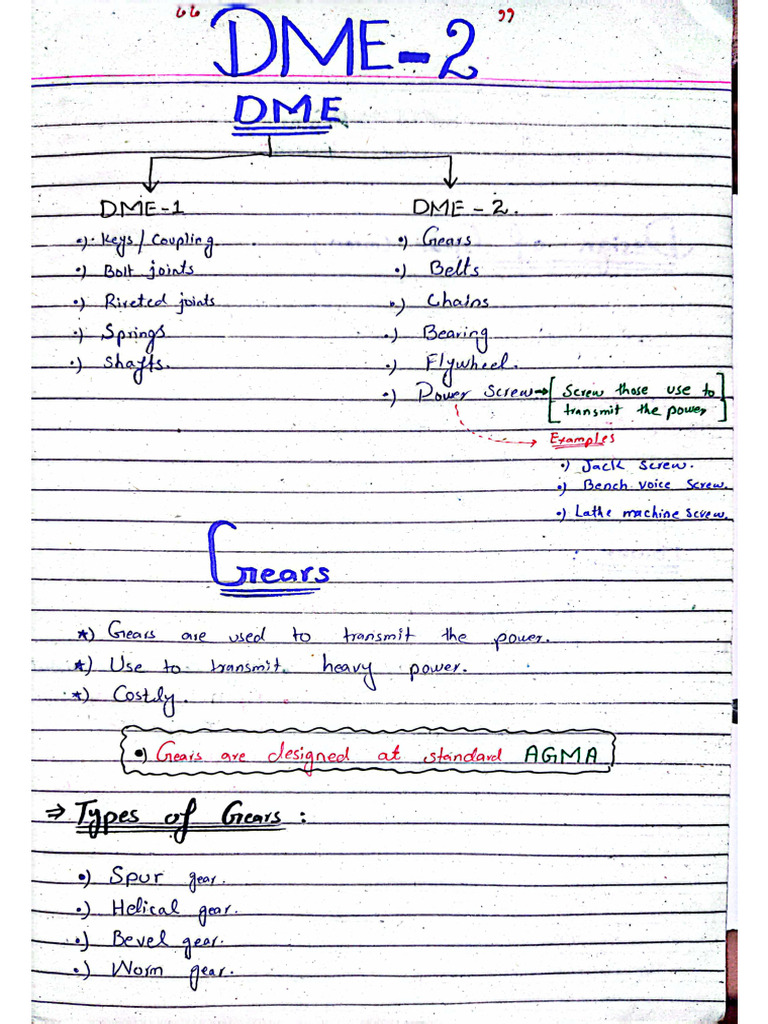 "DME-2"
DME
DME-1 DME-2.
•) Keys/Coupling •) Gears
•) Bolt joints •) Belts
•) Riveted joints •) Chains
•) Springs •) Bearing
•) Shafts. •) Flywheel.
•) Power Screw → [Screw those use to
transmit the power]
Examples
•) Jack Screw.
•) Bench voice Screw.
•) Lathe machine Screw.
Gears
*) Gears are used to transmit the power.
*) Use to transmit heavy power.
*) Costly.
•) Gears are designed at standard AGMA
⇒ Types of Gears :
•) Spur gear.
•) Helical gear.
•) Bevel gear.
•) Worm gear.